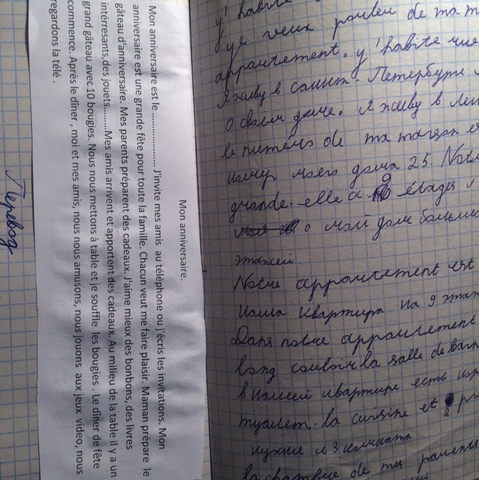 Mon anniversaire.
Mon anniversaire est le ..................... J'invite mes amis au téléphone ou j'écris les invitations. Mon
anniversaire est une grande fête pour toute la famille. Chacun veut me faire plaisir. Maman prépare le
gâteau d'anniversaire. Mes parents préparent des cadeaux. J'aime mieux des bonbons, des livres
intérresants,des jouets........Mes amis arrivent et apportent des cadeaux. Au milieu de la table il y a un
grand gâteau avec 10 bougies. Nous nous mettons à table et je souffle les bougies . Le dîner de fête
commence. Après le dîner , moi et mes amis, nous nous amusons, nous jouons aux jeux video, nous
regardons la télé .
Перевод
y' habite
je veux parler de ma m
appartement. y' habite
Я живу в Санкт Петербурге
о своем доме. Я живу в
le numéro de ma maison e
номер моего дома 25. Notre
grande. elle a 9 étages
мой дом
этажей
Notre appartement est
наша квартира на 9. этаж
Dans notre appartement
long couloir la salle de bain
в нашей квартире есть кор
туалет. la cuisine et
кухня и 3 комната
la chambre de mes parents